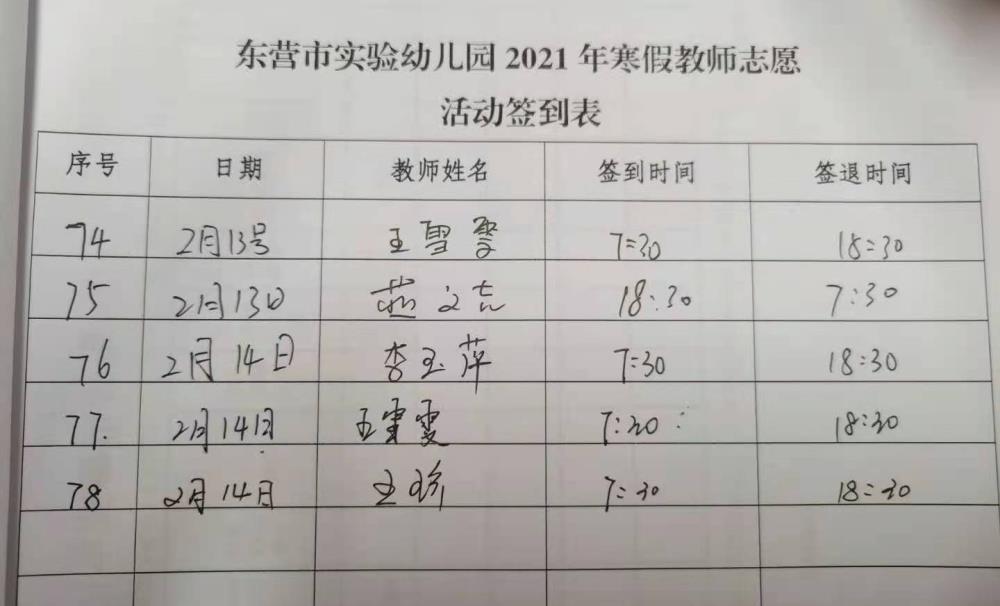 东营市实验幼儿园 2021 年寒假教师志愿
活动签到表
序号 日期 教师姓名 签到时间 签退时间
74 2月13号 王雪雯 7:30 18:30
75 2月13日 燕文志 18:30 7:30
76 2月14日 李玉萍 7:30 18:30
77. 2月14日 王雯 7:30 18:30
78 2月14日 王珍 7:30 18:30